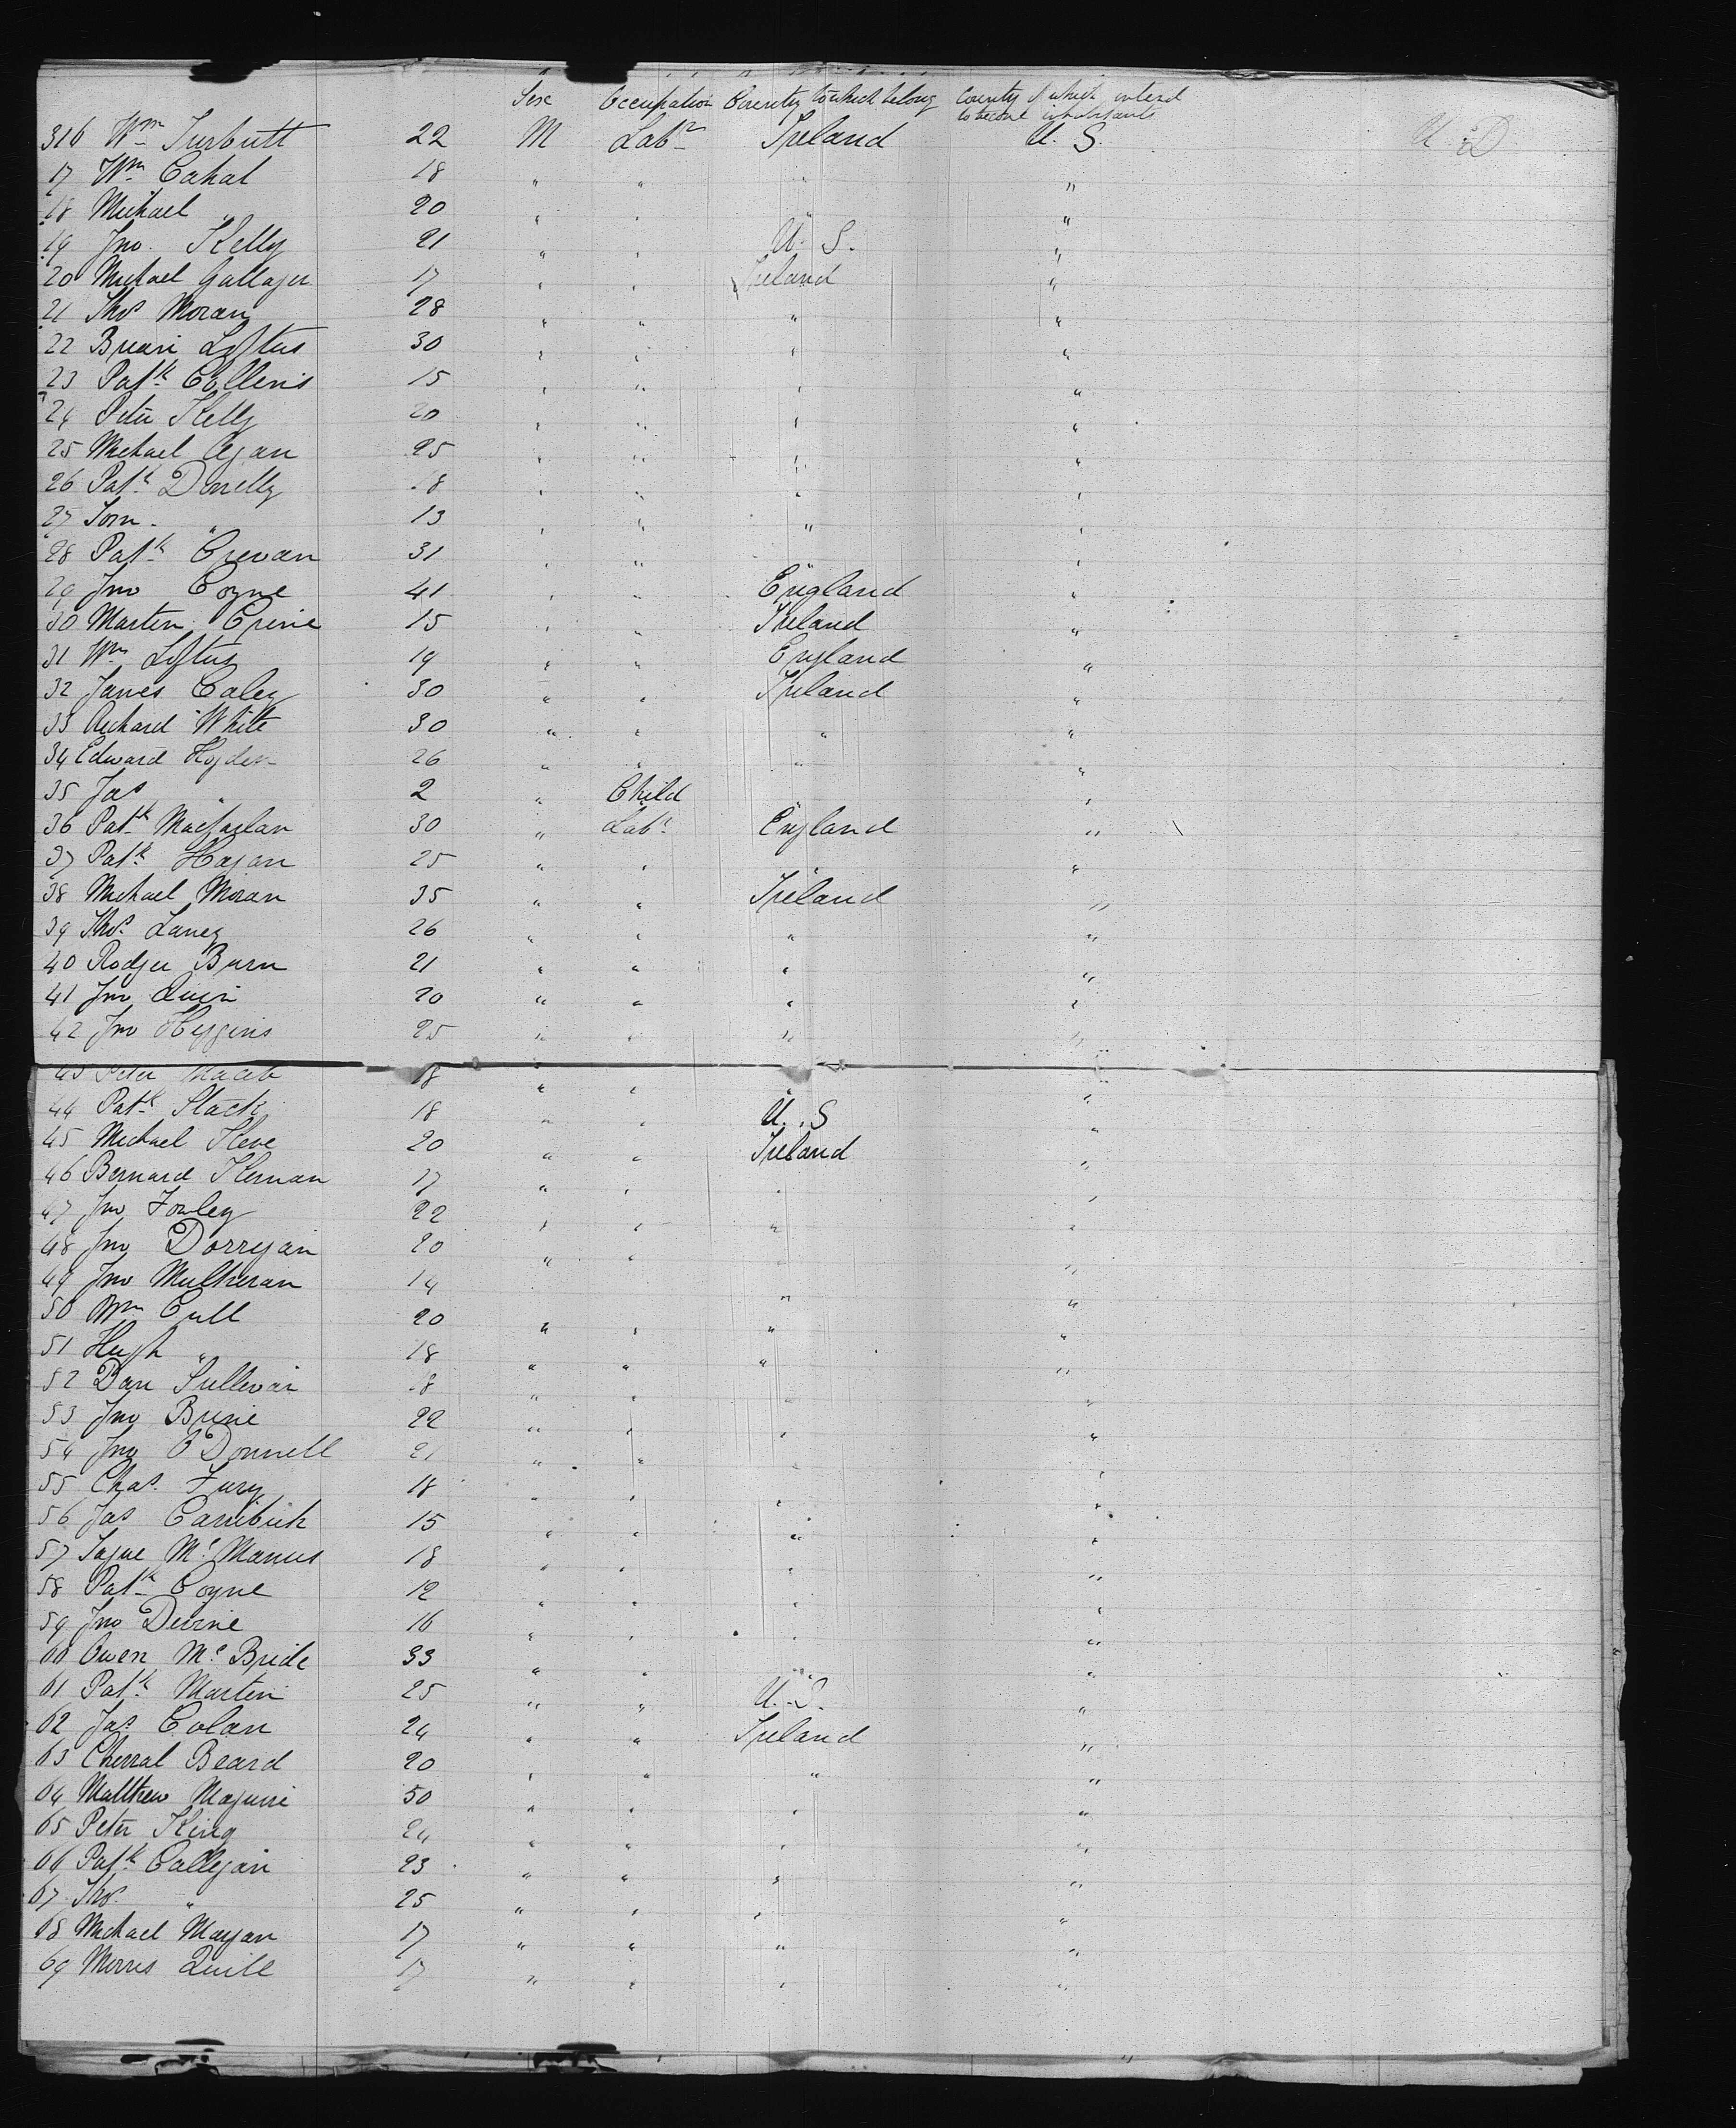 Sex Occupation Country to which belong Country of which intend
to become inhabitants
316 Wm Turbutt 22 M Labr Ireland U. S. U D
17 Wm Cahal 18 " " " "
18 Michael " 20 " " " "
19 Jno. Kelly 21 " " U. S. "
20 Michael Gallager 17 " " Ireland "
21 Thos Moran 28 " " " "
22 Brian Loftus 30 " " " "
23 Patk Collins 15 " " " "
24 Peter Kelly 20 " " " "
25 Michael Agan 25 " " " "
26 Patk Donelly 18 " " " "
27 Tom. " 13 " " " "
28 Patk Crevan 31 " " " "
29 Jno Coyne 41 " " England "
30 Martin Crine 15 " " Ireland "
31 Wm Loftus 19 " " England "
32 James Caley 30 " " Ireland "
33 Richard White 30 " " " "
34 Edward Hogden 26 " " " "
35 Jas " 2 " Child "
36 Patk Macfarlan 30 " Labr England "
37 Patk Hagan 25 " " " "
38 Michael Moran 35 " " Ireland "
39 Thos. Laney 26 " " " "
40 Rodger Burn 21 " " " "
41 Jno Quin 20 " " " "
42 Jno Higgins 25 " " " "
43 Peter 18 " " " "
44 Patk Slack 18 " " U. S "
45 Michael Keve 20 " " Ireland "
46 Bernard Kernan 17 " " " "
47 Jno Fowley 22 " " " "
48 Jno Dorrigan 20 " " " "
49 Jno Mulheran 14 " "
50 Wm Cull 20 " " " "
51 Hugh " 18 " " " "
52 Dan Sullivan 18 " " " "
53 Jno Brine 22 " " " "
54 Jno O'Donnell 21 " " " "
55 Chas. Fury 18 " " " "
56 Jas 15 " " " "
57 Tague Mc Manus 18 " " " "
58 Patk Coyne 12 " " " "
59 Jno Devine 16 " " " "
60 Owen Mc Bride 33 " " " "
61 Patk Martin 25 " " U. S. "
62 Jas Colan 24 " " Ireland "
63 Cherral Beard 20 " " " "
64 Matthew Maguire 50 " " " "
65 Peter King 24 " " " "
66 Patk Calligan 23 " " " "
67 Thos. " 25 " " " "
68 Michael Maygan 17 " " " "
69 Morris Quill 17 " " " "